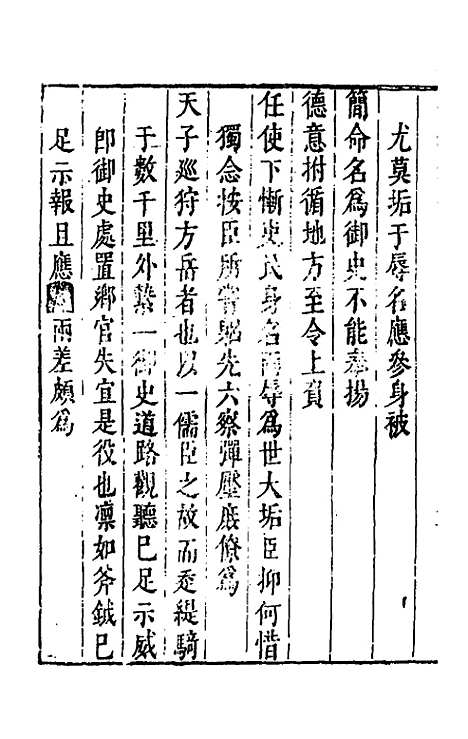 尤莫垢于辱名應參身被
簡命名爲御史不能奉揚
德意拊循地方至令上負
任使下慚吏民身名兩辱爲世大垢臣抑何惜
獨念按臣所嘗驅先六察彈壓庶僚爲
天子巡狩方岳者也以一儒臣之故而遣緹騎
于數千里外縶一御史道路觀聽已足示威
卽御史處置鄉官失宜是役也凛如斧鉞已
足示報且應 兩差頗爲